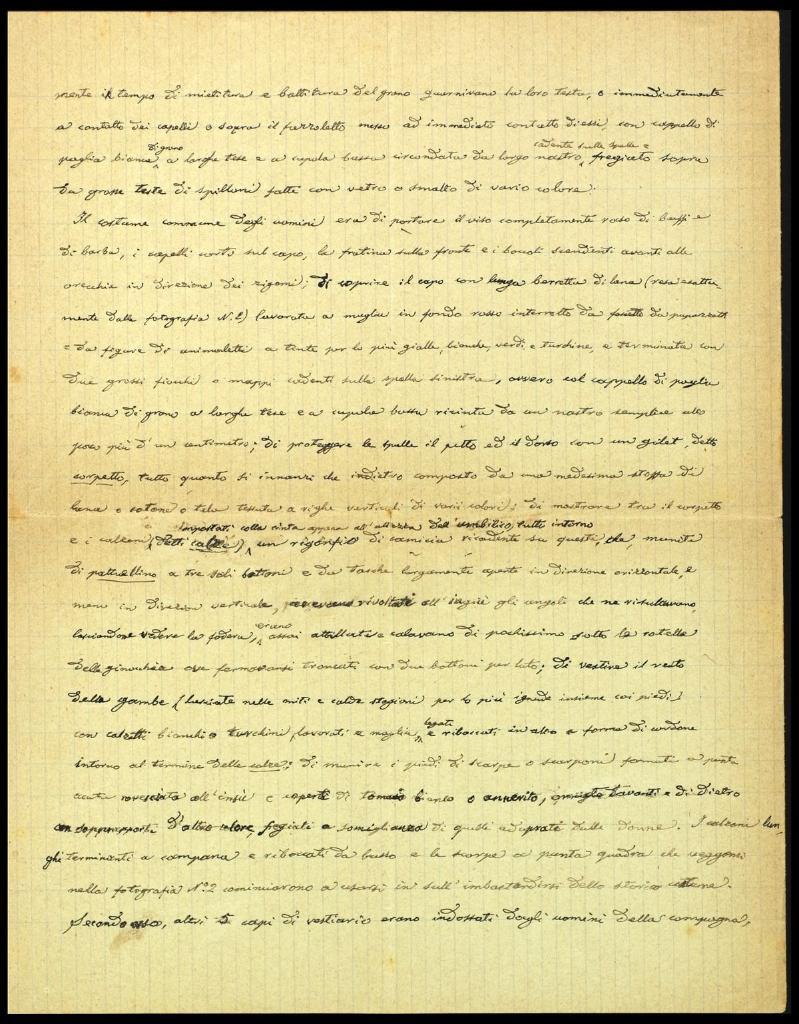 mente in tempo di mietitura e battitura del grano guarnivano la loro testa, o immediatamente
a contatto dei capelli o sopra il fazzoletto messo ad immediato contatto di essi, con cappello di
di grano cadente sulla spalla e
paglia bianca, a larghe tese e a cupola bassa circondata da largo nastro, fregiato sopra
da grosse teste di spilloni fatte con vetro o smalto di vario colore.
Il costume comune degli uomini era di portare il viso completamente raso di baffi e
di barba, i capelli corti sul capo, la fratina sulla fronte e i bocoli scendenti avanti alle
orecchie in direzione dei zigomi; di coprire il capo con lunga berretta di lana (resa esatta-
mente dalla fotografia N. 2) lavorata a maglia in fondo rosso interrotto da da pupazzetti
e da figure di animaletti a tinte per lo più gialle, bianche, verdi e turchine, e terminata con
due grossi fiocchi o mappi cadenti sulla spalla sinistra, ovvero col cappello di paglia
bianca di grano a larghe tese e a cupola bassa ricinta da un nastro semplice alto
poco più d'un centimetro; di proteggere le spalle il petto ed il dorso con un gilet, detto
corpetto, tutto quanto sì innanzi che indietro composto da una medesima stoffa di
lana o cotone o tela tessuta a righe verticali di varii colori; di mostrare tra il corpetto
impostati colla cinta appena all'altezza dell'umbilico, tutto intorno
e i calzoni (detti calze), un rigonfio di camicia ricadente su questi, che, muniti
di pattuellino a tre soli bottoni e da tasche largamente aperte in direzione orizzontale, e
meno in direzion verticale, rivoltati all'ingiù gli angoli che ne risultavano,
erano
lasciandone vedere la fodera, assai attillati e calavano di pochissimo sotto le rotelle
delle ginocchia ove fermavansi troncati con due bottoni per lato; di vestire il resto
delle gambe (lasciate nelle miti e calde stagioni per lo più ignude insieme coi piedi)
legati
con calzetti bianchi o turchini, lavorati a maglia, e riboccati in alto a forma di cordone
intorno al termine delle calze; di munire i piedi di scarpe o scarponi formati a punta
acuta rovesciata all'insù e coperti di tomaio bianco o annerito, avanti e di dietro
sopprapposti d'altro colore, fregiati a somiglianza di quelle adoprate dalle donne. I calzoni lun-
ghi terminenti a campana e riboccati da basso e le scarpe a punta quadra che veggonsi
nella fotografia N.o 2 cominciarono a usarsi in sull'imbastardirsi dello storico costume.
Secondo esso, altri 5 capi di vestiario erano indossati dagli uomini della campagna,